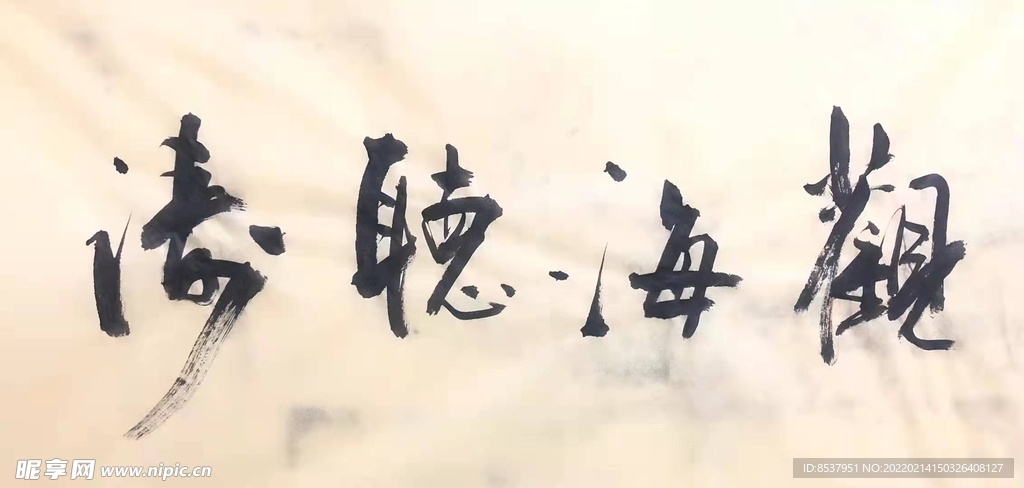 觀海聽濤
昵享网 www.nipic.cn
ID:8537951 NO:20220214150326408127